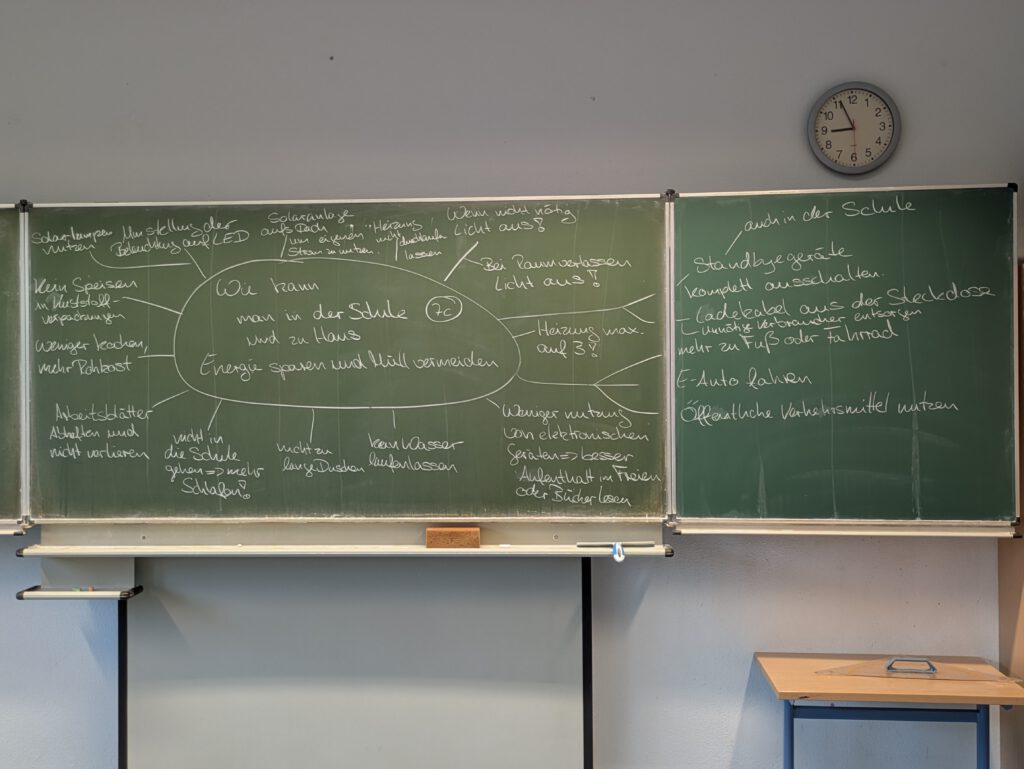 Solarlampen
nutzen
Umstellung der
Beleuchtung auf LED
Solaranlage
aufs Dach
um eigenen
Strom zu nutzen.
Heizung
nicht
durchlaufen
lassen
Wenn nicht nötig
Licht aus!
Bei Raumverlassen
Licht aus!
Kein Speisen
in Kunststoff-
verpackungen
Wie kann
man in der Schule
7c
und zu Haus
Energie sparen und Müll vermeiden
Heizung max.
auf 3!
Weniger kochen,
mehr Rohkost
Arbeitsblätter
Abheften und
nicht verlieren
nicht in
die Schule
gehen => mehr
Schlafen!
nicht zu
lange Duschen
kein Wasser
laufen lassen
Weniger nutzung
von elektronischen
Geräten => besser
Aufenthalt im Freien
oder Bücher lesen
auch in der Schule
Standbygeräte
komplett ausschalten.
Ladekabel aus der Steckdose
unnötige Verbraucher entsorgen
mehr zu Fuß oder Fahrrad
E-Auto fahren
Öffentliche Verkehrsmittel nutzen
12
1
2
3
4
5
6
7
8
9
10
11